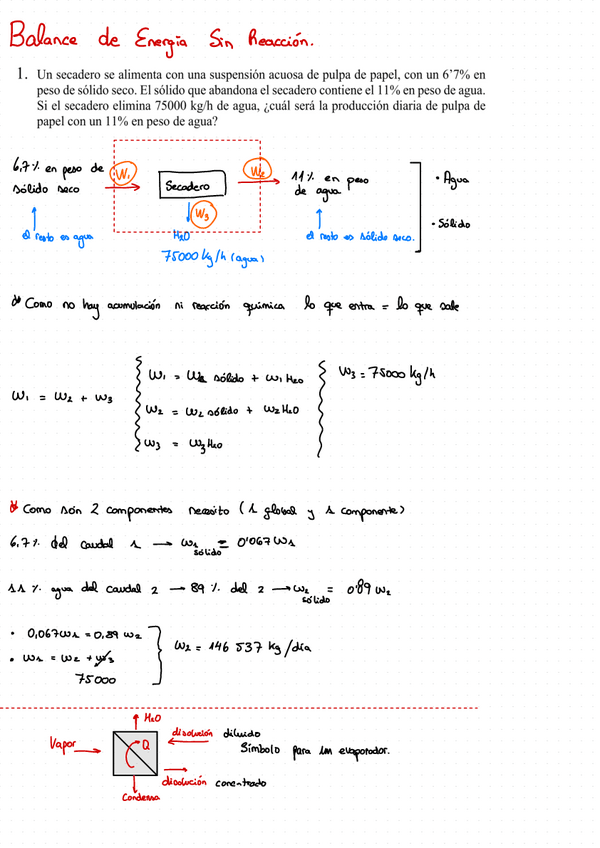 Balance de Energía Sin Reacción.
1. Un secadero se alimenta con una suspensión acuosa de pulpa de papel, con un 6'7% en
peso de sólido seco. El sólido que abandona el secadero contiene el 11% en peso de agua.
Si el secadero elimina 75000 kg/h de agua, ¿cuál será la producción diaria de pulpa de
papel con un 11% en peso de agua?
6,7% en peso de
sólido seco
W1
Secadero
W2
11% en peso
de agua
• Agua
• Sólido
W3
el resto es agua
H2O
75000 kg/h (agua)
el resto es sólido seco.
Como no hay acumulación ni reacción química lo que entra = lo que sale
W1 = W2 + W3
W1 = W1 sólido + W1 H2O
W2 = W2 sólido + W2 H2O
W3 = W3 H2O
W3 = 75000 kg/h
Como són 2 componentes necesito (1 global y 1 componente)
6,7% del caudal 1 → W1 sólido = 0'067 W1
11% agua del caudal 2 → 89% del 2 → W2 sólido = 0'89 W2
• 0,067W1 = 0,89 W2
• W1 = W2 + W3
75000
W2 = 146 537 kg/día
H2O
Vapor
Q
disolución diluido
Símbolo para un evaporador.
disolución concentrado
Condensa